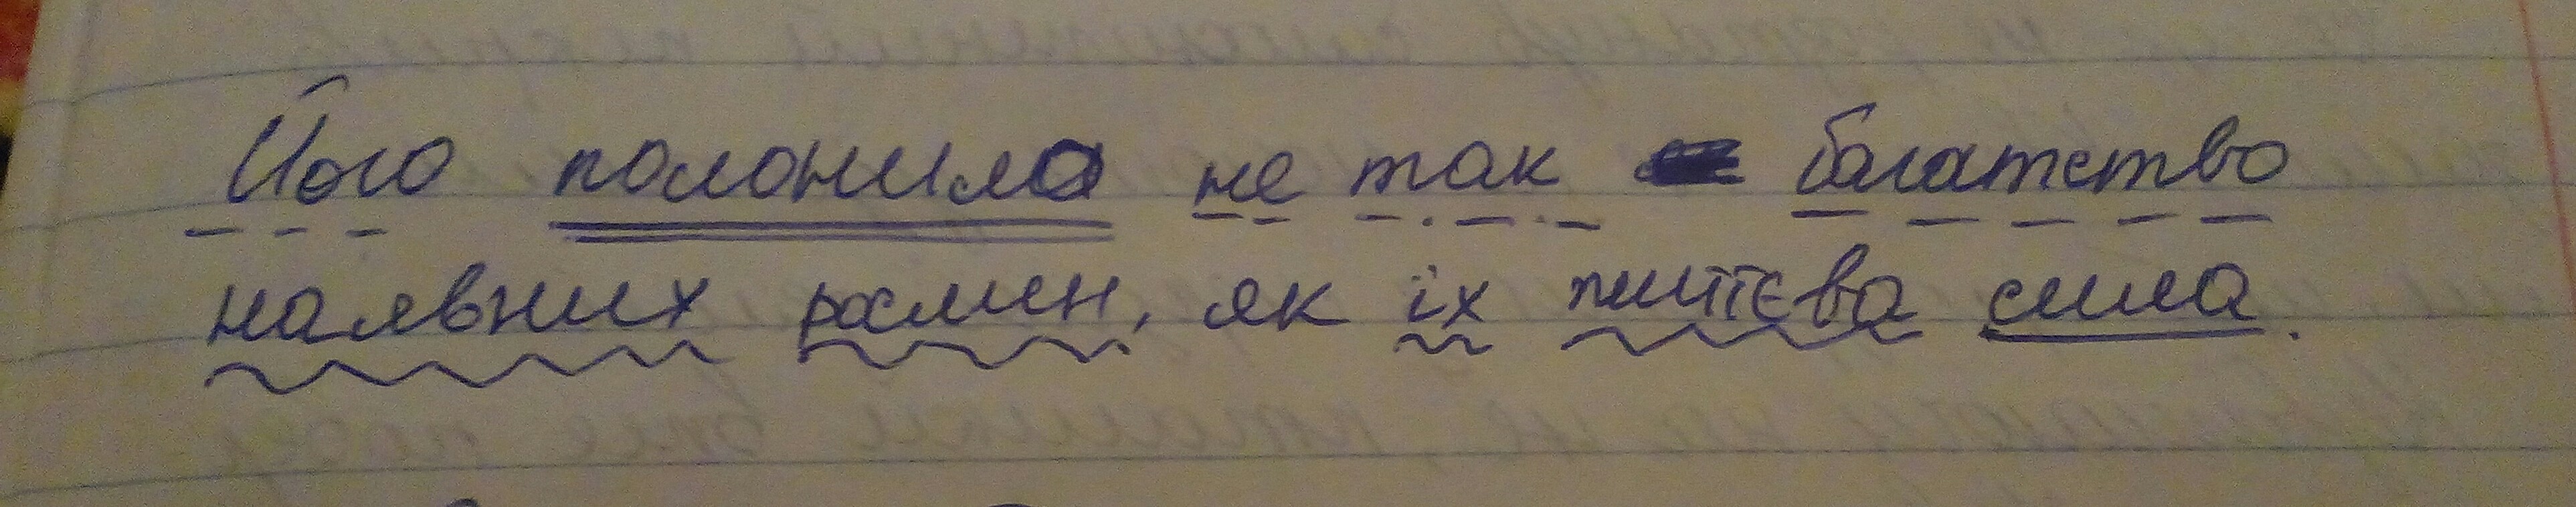 Його полонила не так багатство
наявних рослин, як їх життєва сила.